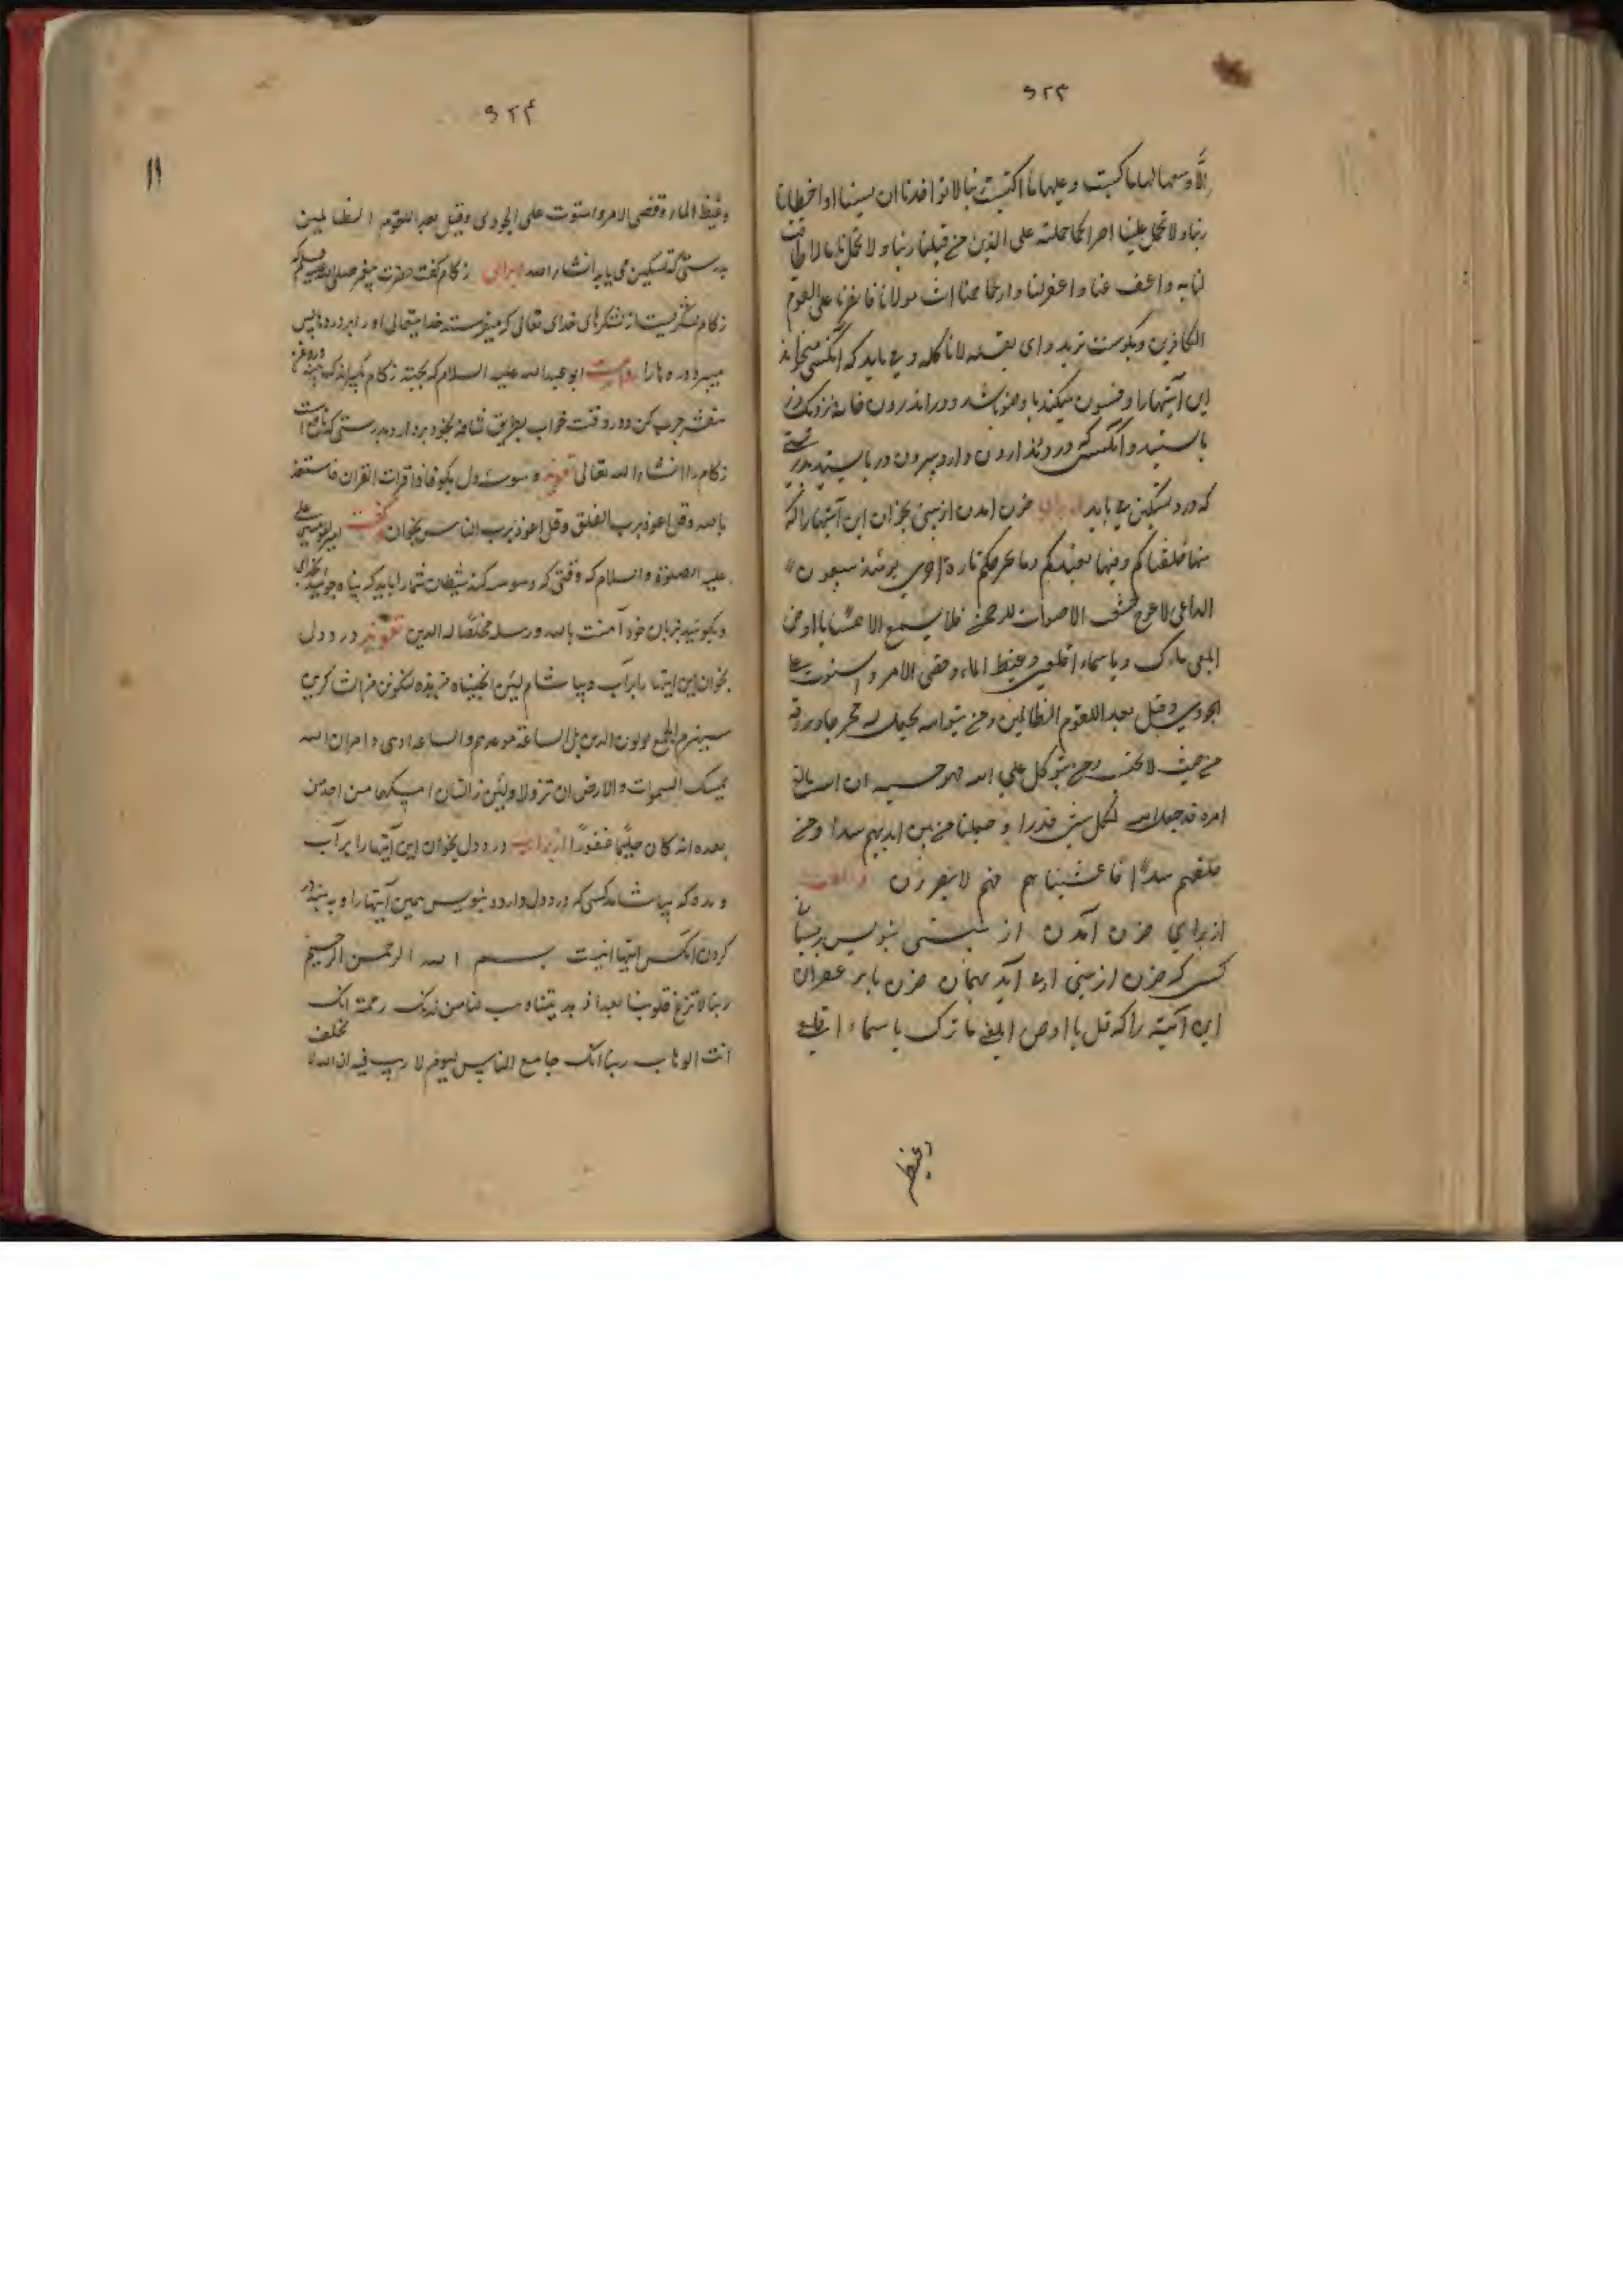 ۹۲۳
الّا وسعها لها ما کسبت وعلیها ما اکتسبت ربنا لا تواخذنا ان نسینا او اخطانا
ربنا ولا تحمل علینا اصرا کما حملته علی الذین من قبلنا ربنا ولا تحملنا ما لا طاقت
لنا به واعف عنا واغفرلنا وارحمنا انت مولانا فانصرنا علی القوم
الکافرین و بکوست ترید وای بقعه لا ناکله و می باید که آنکسی میخواند
این آیتها را و فسون میکند با وضو باشد و در اندرون خانه نزدیک در
باستید و آنکسی که درد دندان دارد بیرون در باستید بدرستی
که درد تسکین می یابد از برای خون امدن از بینی بخوان این آیتها را که
منها خلقناکم وفیها نعیدکم ومنها نخرجکم تارة اخری یومئذ یتبعون
الداعی لا عوج خشعت الاصوات للرحمن فلا تسمع الا همسا یا ارض
ابلعی ماءک ویا سماء اقلعی وغیض الماء وقضی الامر واستوت علی
الجودی وقیل بعدا للقوم الظالمین ومن یتق الله یجعل له مخرجا ویرزقه
من حیث لا یحتسب ومن یتوکل علی الله فهو حسبه ان الله بالغ
امره قد جعل الله لکل شی قدرا و جعلنا من بین ایدیهم سدا ومن
خلفهم سدّا فاغشیناهم فهم لا یبصرون
از برای خون آمدن از بینی بنویس بر پیشانی
کسی که خون از بینی او می آید بهمان خون یا بزعفران
این آیته را که قیل یا ارض ابلعی ماءک یا سماء اقلعی
وغیض
۹۲۴
۱۱
وغیض الماء وقضی الامر واستوت علی الجودی وقیل بعدا للقوم الظالمین
بدرستی که تسکین می یابد انشاء الله از برای زکام کفت حضرت پیغمبر صلی الله علیه وسلم که
زکام لشکریست از لشکرهای خدای تعالی که میفرستد خدایتعالی او را بر دردها پس
میبرد دردها را روایت ابو عبد الله علیه السلام که بجهته زکام بکیر اندک پنبه و روغن
بنفشه چرب کن و در وقت خواب بطریق شافه بخود بردار بدرستی که نافع است
زکام را انشاء الله تعالی تعویذ وسوسهٔ دل بکو فاذا قرات القران فاستعذ
بالله وقل اعوذ برب الفلق وقل اعوذ برب الناس بخوان کفت امیر المومنین علی
علیه الصلوة والسلام که وقتی که وسوسه کند شیطان شما را باید که پناه جوئید بخدای
و بکوئید بزبان خود آمنت بالله ورسله مخلصًا له الدین تعویذ درد دل
بخوان این آیتها را بر آب و بیاشام لئن انجیتنا من هذه لنکونن من الشاکرین
سیهزم الجمع ویولون الدبر بل الساعة موعدهم والساعة ادهی وامر ان الله
یمسک السموات والارض ان تزولا ولئن زالتا ان امسکهما من احد من
بعده انه کان حلیمًا غفورًا از برای درد دل بخوان این آیتها را بر آب
و بده که بیاشامد کسی که درد دل دارد و بنویس همین آیتها را و به بند در
کردن آنکس آیتها اینست بسم الله الرحمن الرحیم
ربنا لا تزغ قلوبنا بعد اذ هدیتنا وهب لنا من لدنک رحمة انک
انت الوهاب ربنا انک جامع الناس لیوم لا ریب فیه ان الله لا یخلف